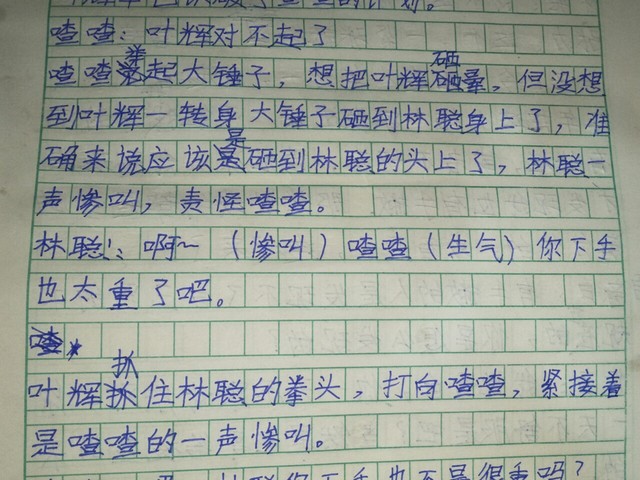 喳喳：叶辉对不起了
喳喳拳起大锤子，想把叶辉砸晕，但没想
到叶辉一转身大锤子砸到林聪身上了，准
确来说应该是砸到林聪的头上了，林聪一
声惨叫，责怪喳喳。
林聪：啊~（惨叫）喳喳（生气）你下手
也太重了吧。
叶辉抓住林聪的拳头，打向喳喳，紧接着
是喳喳的一声惨叫。